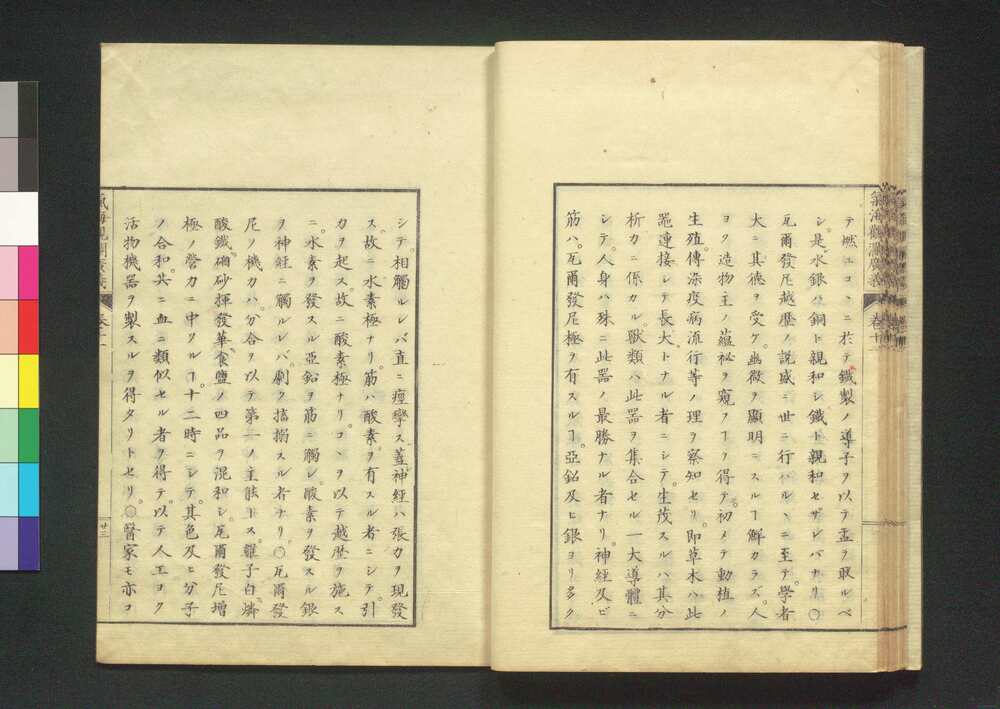 氣海觀瀾廣義
卷十一
テ燃エコヽニ於テ鐵製ノ導子ヲ以テ盃ヲ取ルベ
シ是水銀ハ銅ト親和シ鐵ト親和セザレバナリ〇
瓦爾發尼越歷ノ說盛ニ世ニ行ハルヽニ至テ學者
大ニ其德ヲ受ケ幽微ヲ顯明ニスルヿ鮮カラズ人
ヨク造物主ノ蘊祕ヲ窺フヿヲ得テ初メテ動植ノ
生殖傳染疫病流行等ノ理ヲ察知セリ即草木ハ此
器連接シテ長大トナル者ニシテ生茂スルハ其分
析力ニ係カル獸類ハ此器ヲ集合セル一大導體ニ
シテ人身ハ殊ニ此器ノ最勝ナル者ナリ神經及ビ
筋ハ瓦爾發尼極ヲ有スルヿ亞鉛及ヒ銀ヨリ多ク
シテ相觸ルレバ直ニ瘞攣ス蓋神經ハ張力ヲ現發
ス故ニ水素極ナリ筋ハ酸素ヲ有スル者ニシテ引
力ヲ起ス故ニ酸素極ナリコヽヲ以テ越歷ヲ施ス
ニ水素ヲ發スル亞鉛ヲ筋ニ觸レ酸素ヲ發スル銀
ヲ神經ニ觸ルレバ劇ク搐搦スル者ナリ〇瓦爾發
尼ノ機力ハ分合ヲ以テ第一ノ主能トス雞子白燐
酸鐵硇砂揮發華食鹽ノ四品ヲ混和シ瓦爾發尼增
極ノ營力ニ中ツルヿ十二時ニシテ其色及ヒ分子
ノ合和共ニ血ニ類似セル者ヲ得テ以テ人工ヨク
活物機器ヲ製スルヲ得タリトセリ〇醫家モ亦コ
卷十一
廿三